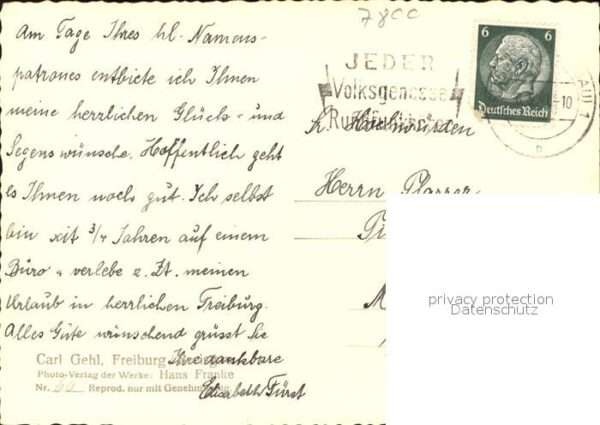 7800
Am Tage Ihres hl. Namens-
patrones entbiete ich Ihnen
meine herrlichen Glücks- und
Segenswünsche. Hoffentlich geht
es Ihnen noch gut. Ich selbst
bin seit 3/4 Jahren auf einem
Büro u. verlebe z. Zt. meinen
Urlaub in herrlichen Freiburg.
Alles Gute wünschend grüsst Sie
Ihre dankbare
Elisabeth Fürst
Carl Gehl, Freiburg
Photo-Verlag der Werke: Hans Franke
Nr. Reprod. nur mit Genehmigung
JEDER
Volksgenosse
6 6
Deutsches Reich
10
Hochwürden
Herrn Pfarrer
privacy protection
Datenschutz